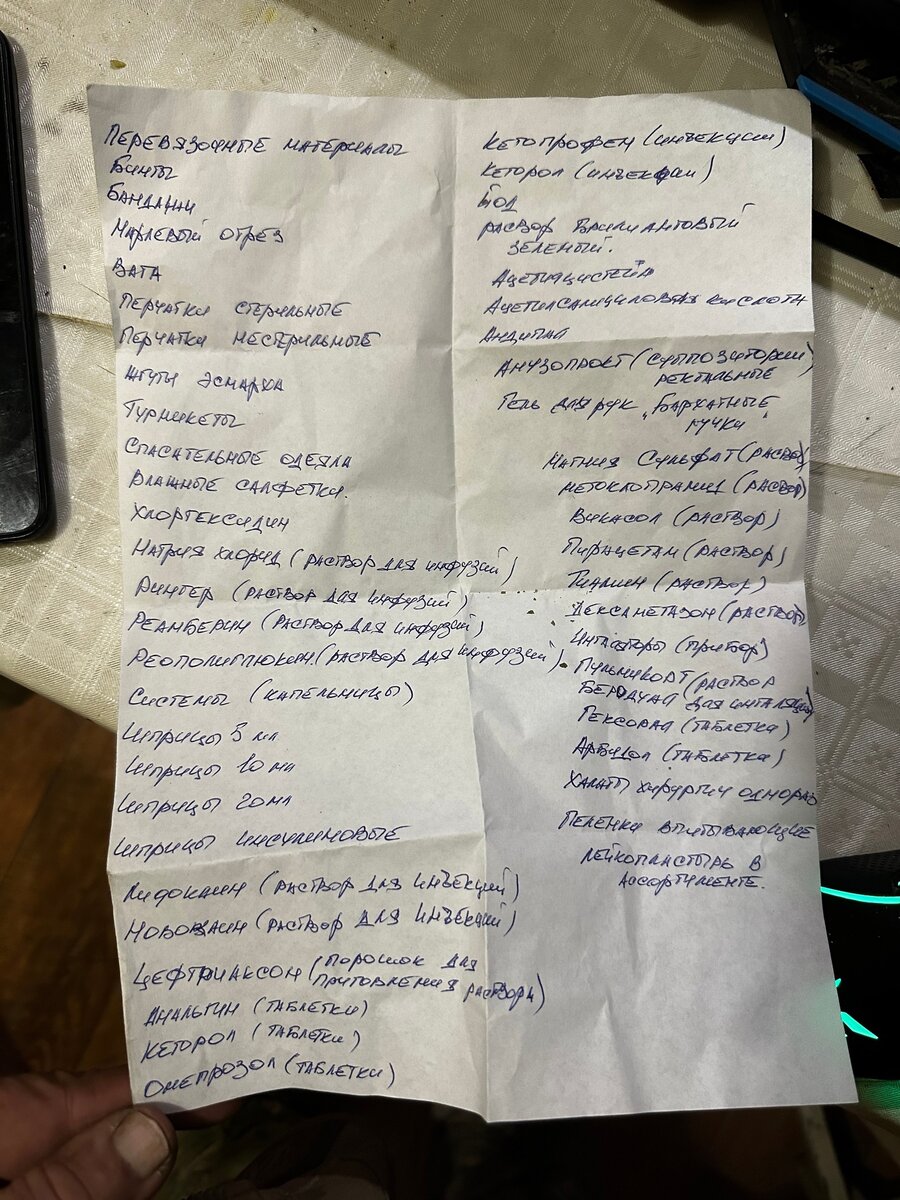 ПЕРЕВЯЗОЧНЫЕ МАТЕРИАЛЫ
БИНТЫ
БАНДАЖИ
МАРЛЕВЫЙ ОТРЕЗ
ВАТА
ПЕРЧАТКИ СТЕРИЛЬНЫЕ
ПЕРЧАТКИ НЕСТЕРИЛЬНЫЕ
ЖГУТЫ ЭСМАРХА
ТУРНИКЕТЫ
СПАСАТЕЛЬНЫЕ ОДЕЯЛА
ВЛАЖНЫЕ САЛФЕТКИ.
ХЛОРГЕКСИДИН
НАТРИЯ ХЛОРИД (РАСТВОР ДЛЯ ИНФУЗИЙ)
РИНГЕР (РАСТВОР ДЛЯ ИНФУЗИЙ)
РЕАМБЕРИН (РАСТВОР ДЛЯ ИНФУЗИЙ)
РЕОПОЛИГЛЮКИН (РАСТВОР ДЛЯ ИНФУЗИЙ)
СИСТЕМЫ (КАПЕЛЬНИЦЫ)
ШПРИЦЫ 3 МЛ
ШПРИЦЫ 10 МЛ
ШПРИЦЫ 20 МЛ
ШПРИЦЫ ИНСУЛИНОВЫЕ
ЛИДОКАИН (РАСТВОР ДЛЯ ИНЪЕКЦИЙ)
НОВОКАИН (РАСТВОР ДЛЯ ИНЪЕКЦИЙ)
ЦЕФТРИАКСОН (ПОРОШОК ДЛЯ
ПРИГОТОВЛЕНИЯ РАСТВОРА)
АНАЛЬГИН (ТАБЛЕТКИ)
КЕТОРОЛ (ТАБЛЕТКИ)
ОМЕПРОЗОЛ (ТАБЛЕТКИ)
КЕТОПРОФЕН (ИНЪЕКЦИИ)
КЕТОРОЛ (ИНЪЕКЦИИ)
ЙОД
РАСТВОР БРИЛИАНТОВЫЙ
ЗЕЛЕНЫЙ.
АЦЕТИЛЦИСТЕИН
АЦЕТИЛСАЛИЦИЛОВАЯ КИСЛОТА
АНДИПАЛ
АНУЗОПРОКТ (СУППОЗИТОРИИ
РЕКТАЛЬНЫЕ)
ГЕЛЬ ДЛЯ РУК "БАРХАТНЫЕ
РУЧКИ"
МАГНИЯ СУЛЬФАТ (РАСТВОР)
МЕТОКЛОПРАМИД (РАСТВОР)
ВИКАСОЛ (РАСТВОР)
ПИРАЦЕТАМ (РАСТВОР)
(РАСТВОР)
ДЕКСАМЕТАЗОН (РАСТВОР)
(ПРИБОР)
ПУЛЬМИКОРТ (РАСТВОР
БЕРОДУАЛ ДЛЯ ИНГАЛЯЦИЙ)
ГЕКСОРАЛ (ТАБЛЕТКИ)
АРБИДОЛ (ТАБЛЕТКИ)
ХАЛАТЫ ХИРУРГИЧ ОДНОРАЗ
ПЕЛЕНКИ ВПИТЫВАЮЩИЕ
ЛЕЙКОПЛАСТЫРЬ В
АССОРТИМЕНТЕ.